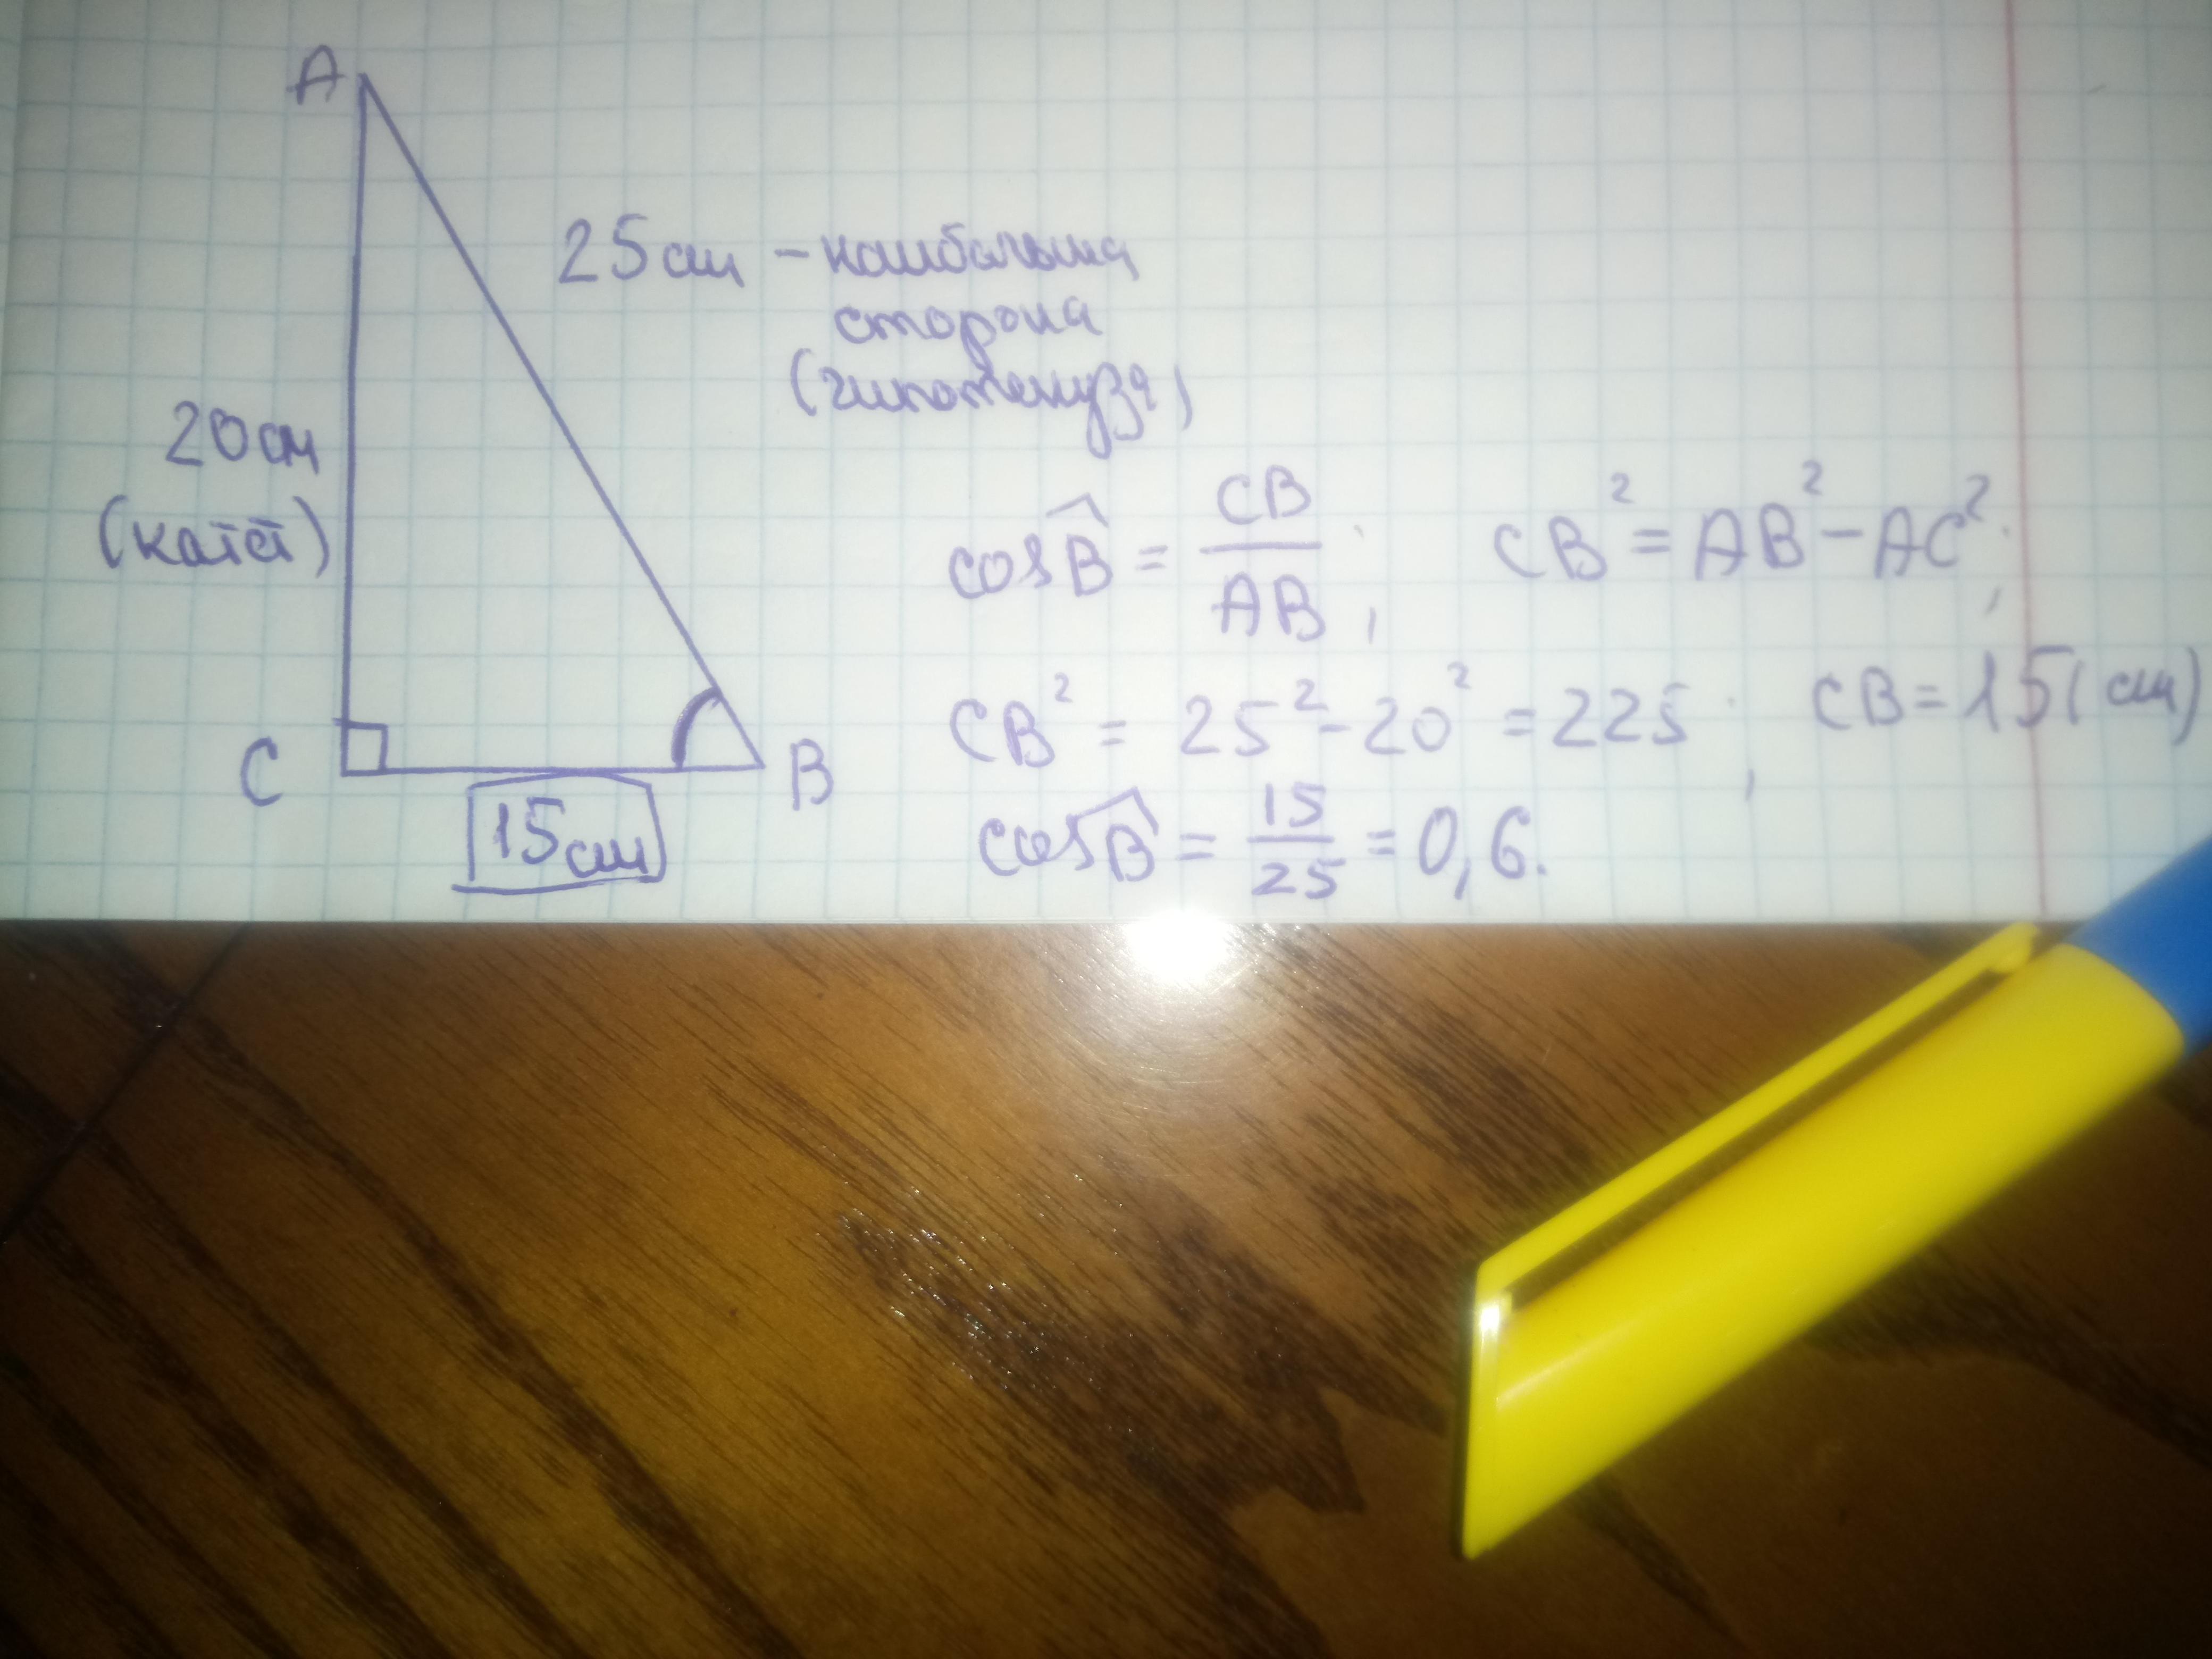 A
25 см – найбільша
сторона
(гипотенуза)
20 см
(катет)
cos B̂ = CB/AB; CB² = AB² – AC²;
CB² = 25² – 20² = 225; CB = 15 (см)
C
B
15 см
cos B̂ = 15/25 = 0,6.